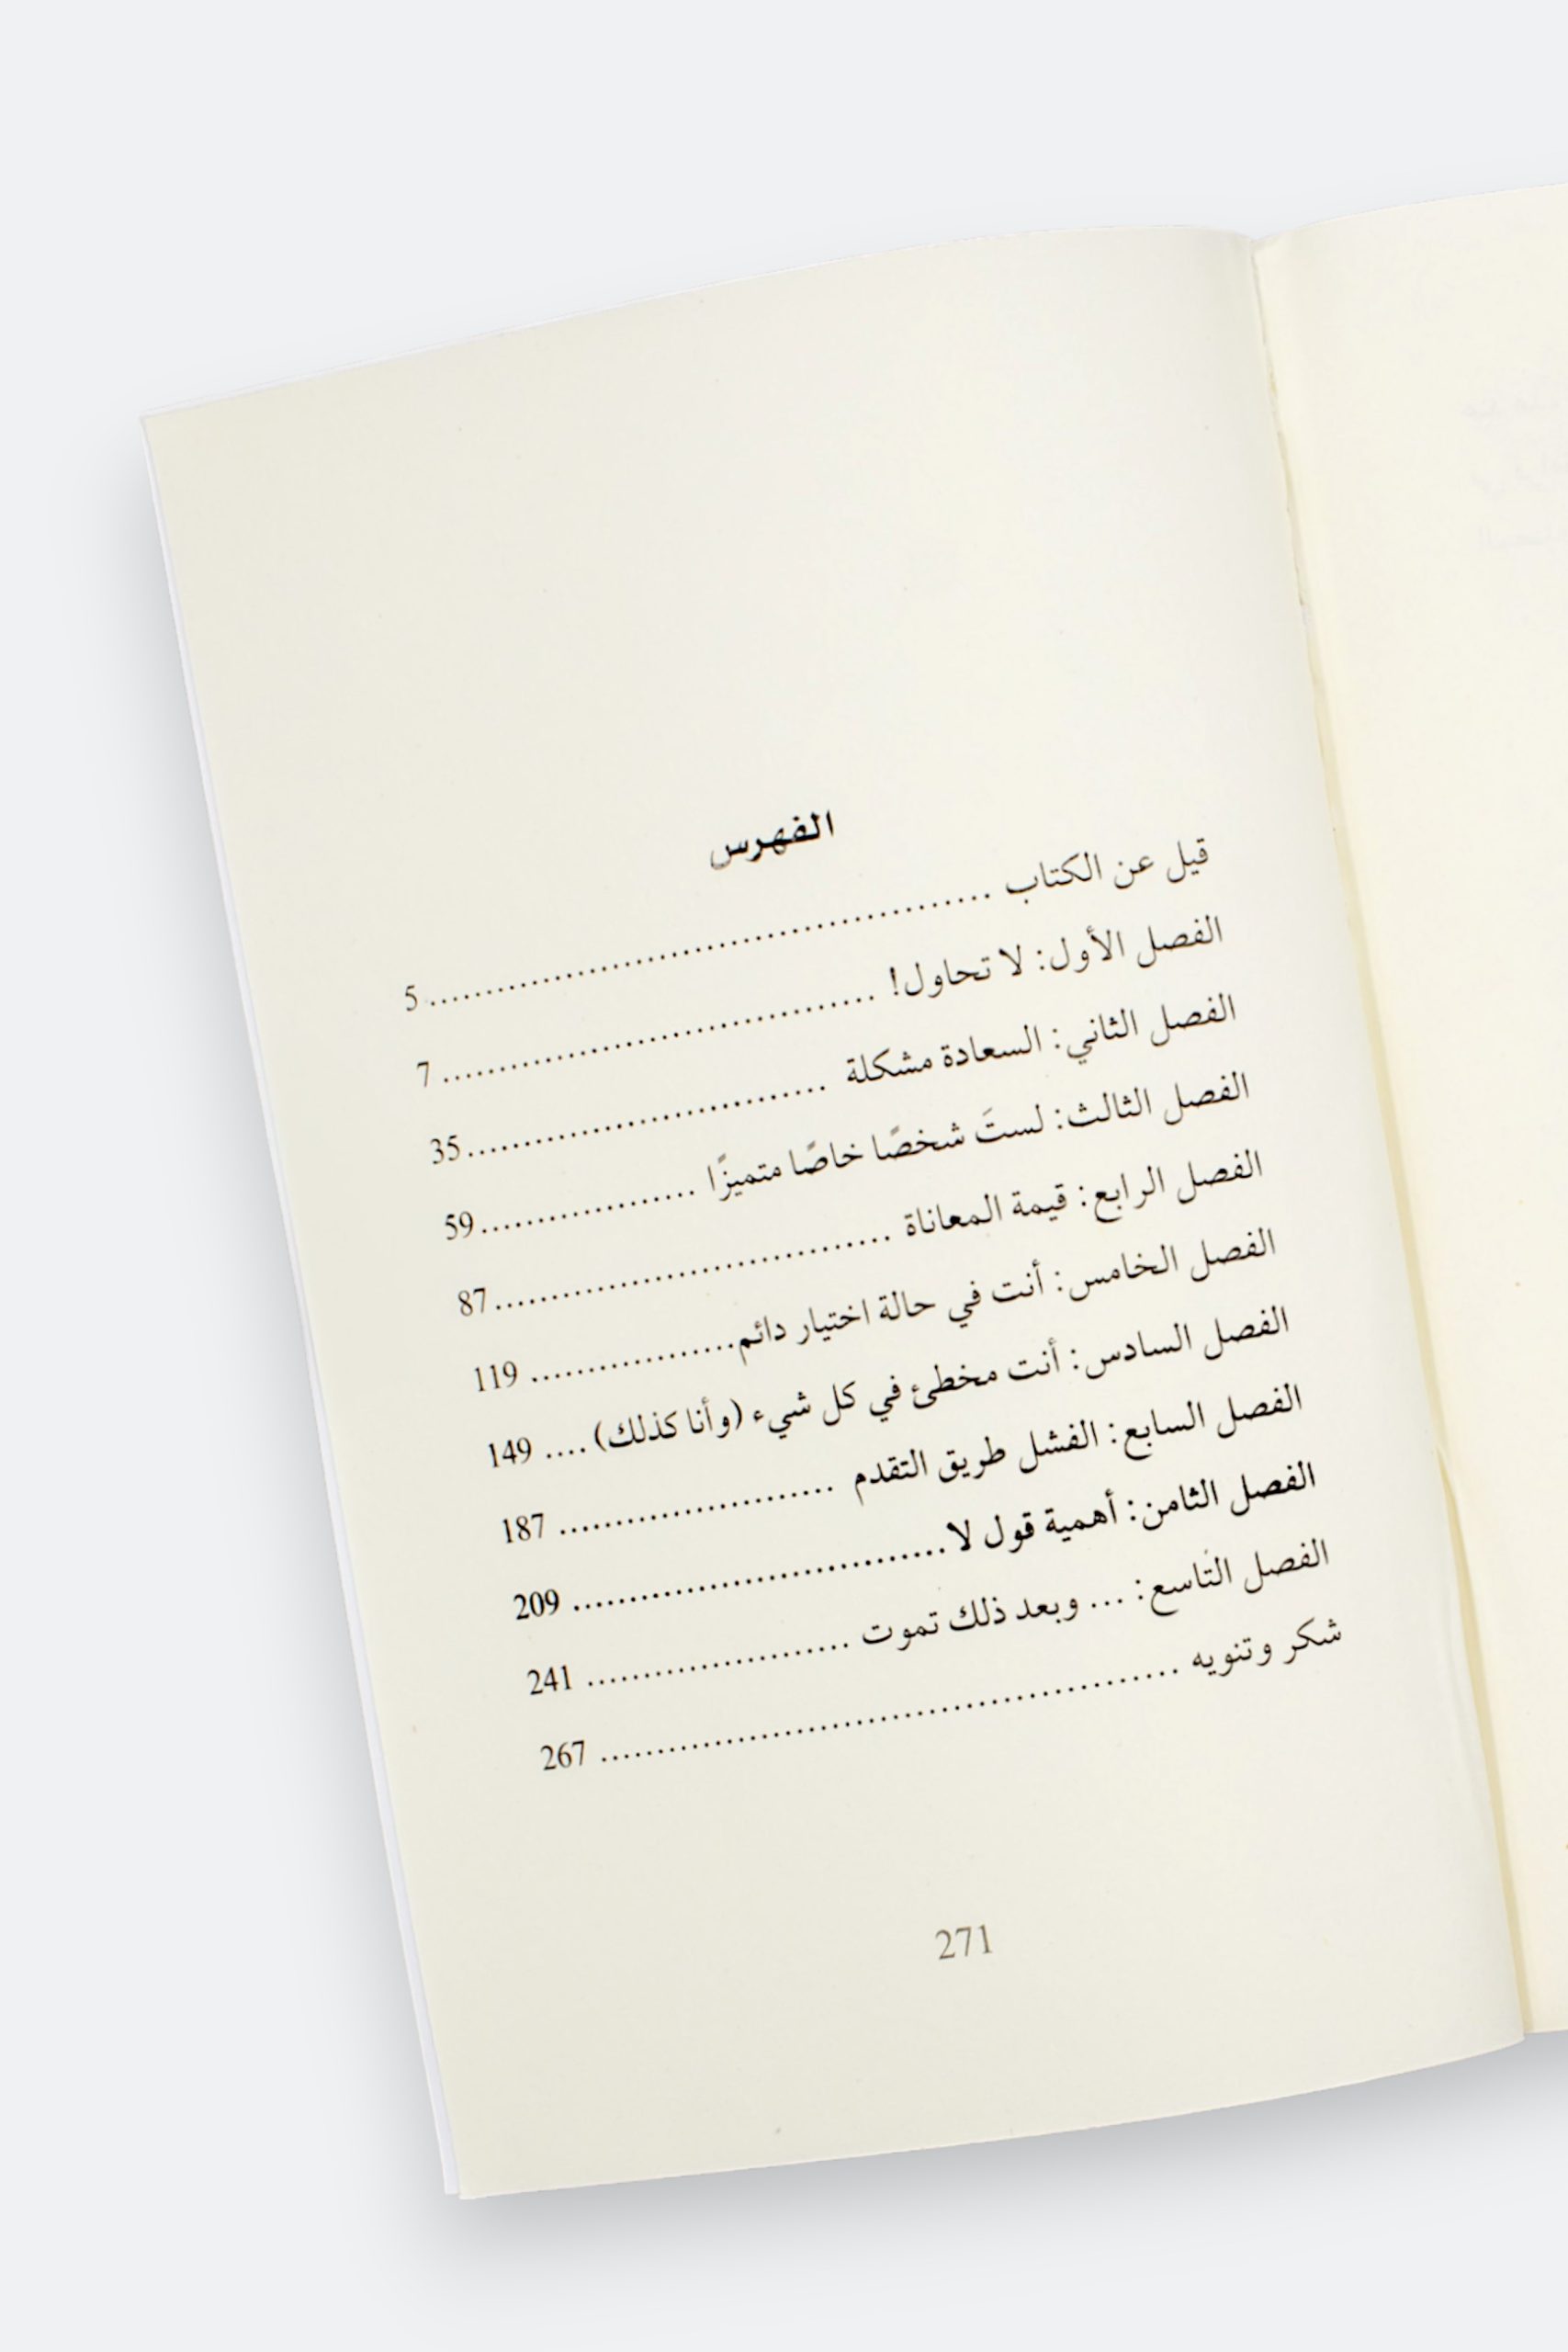 الفهرس
قيل عن الكتاب ........................................................ 5
الفصل الأول: لا تحاول! .......................................... 7
الفصل الثاني: السعادة مشكلة ................................... 35
الفصل الثالث: لستَ شخصًا خاصًا متميزًا .................... 59
الفصل الرابع: قيمة المعاناة ....................................... 87
الفصل الخامس: أنت في حالة اختيار دائم................... 119
الفصل السادس: أنت مخطئ في كل شيء (وأنا كذلك) .... 149
الفصل السابع: الفشل طريق التقدم ......................... 187
الفصل الثامن: أهمية قول لا................................. 209
الفصل التاسع: ... وبعد ذلك تموت ........................ 241
شكر وتنويه .................................................... 267
271